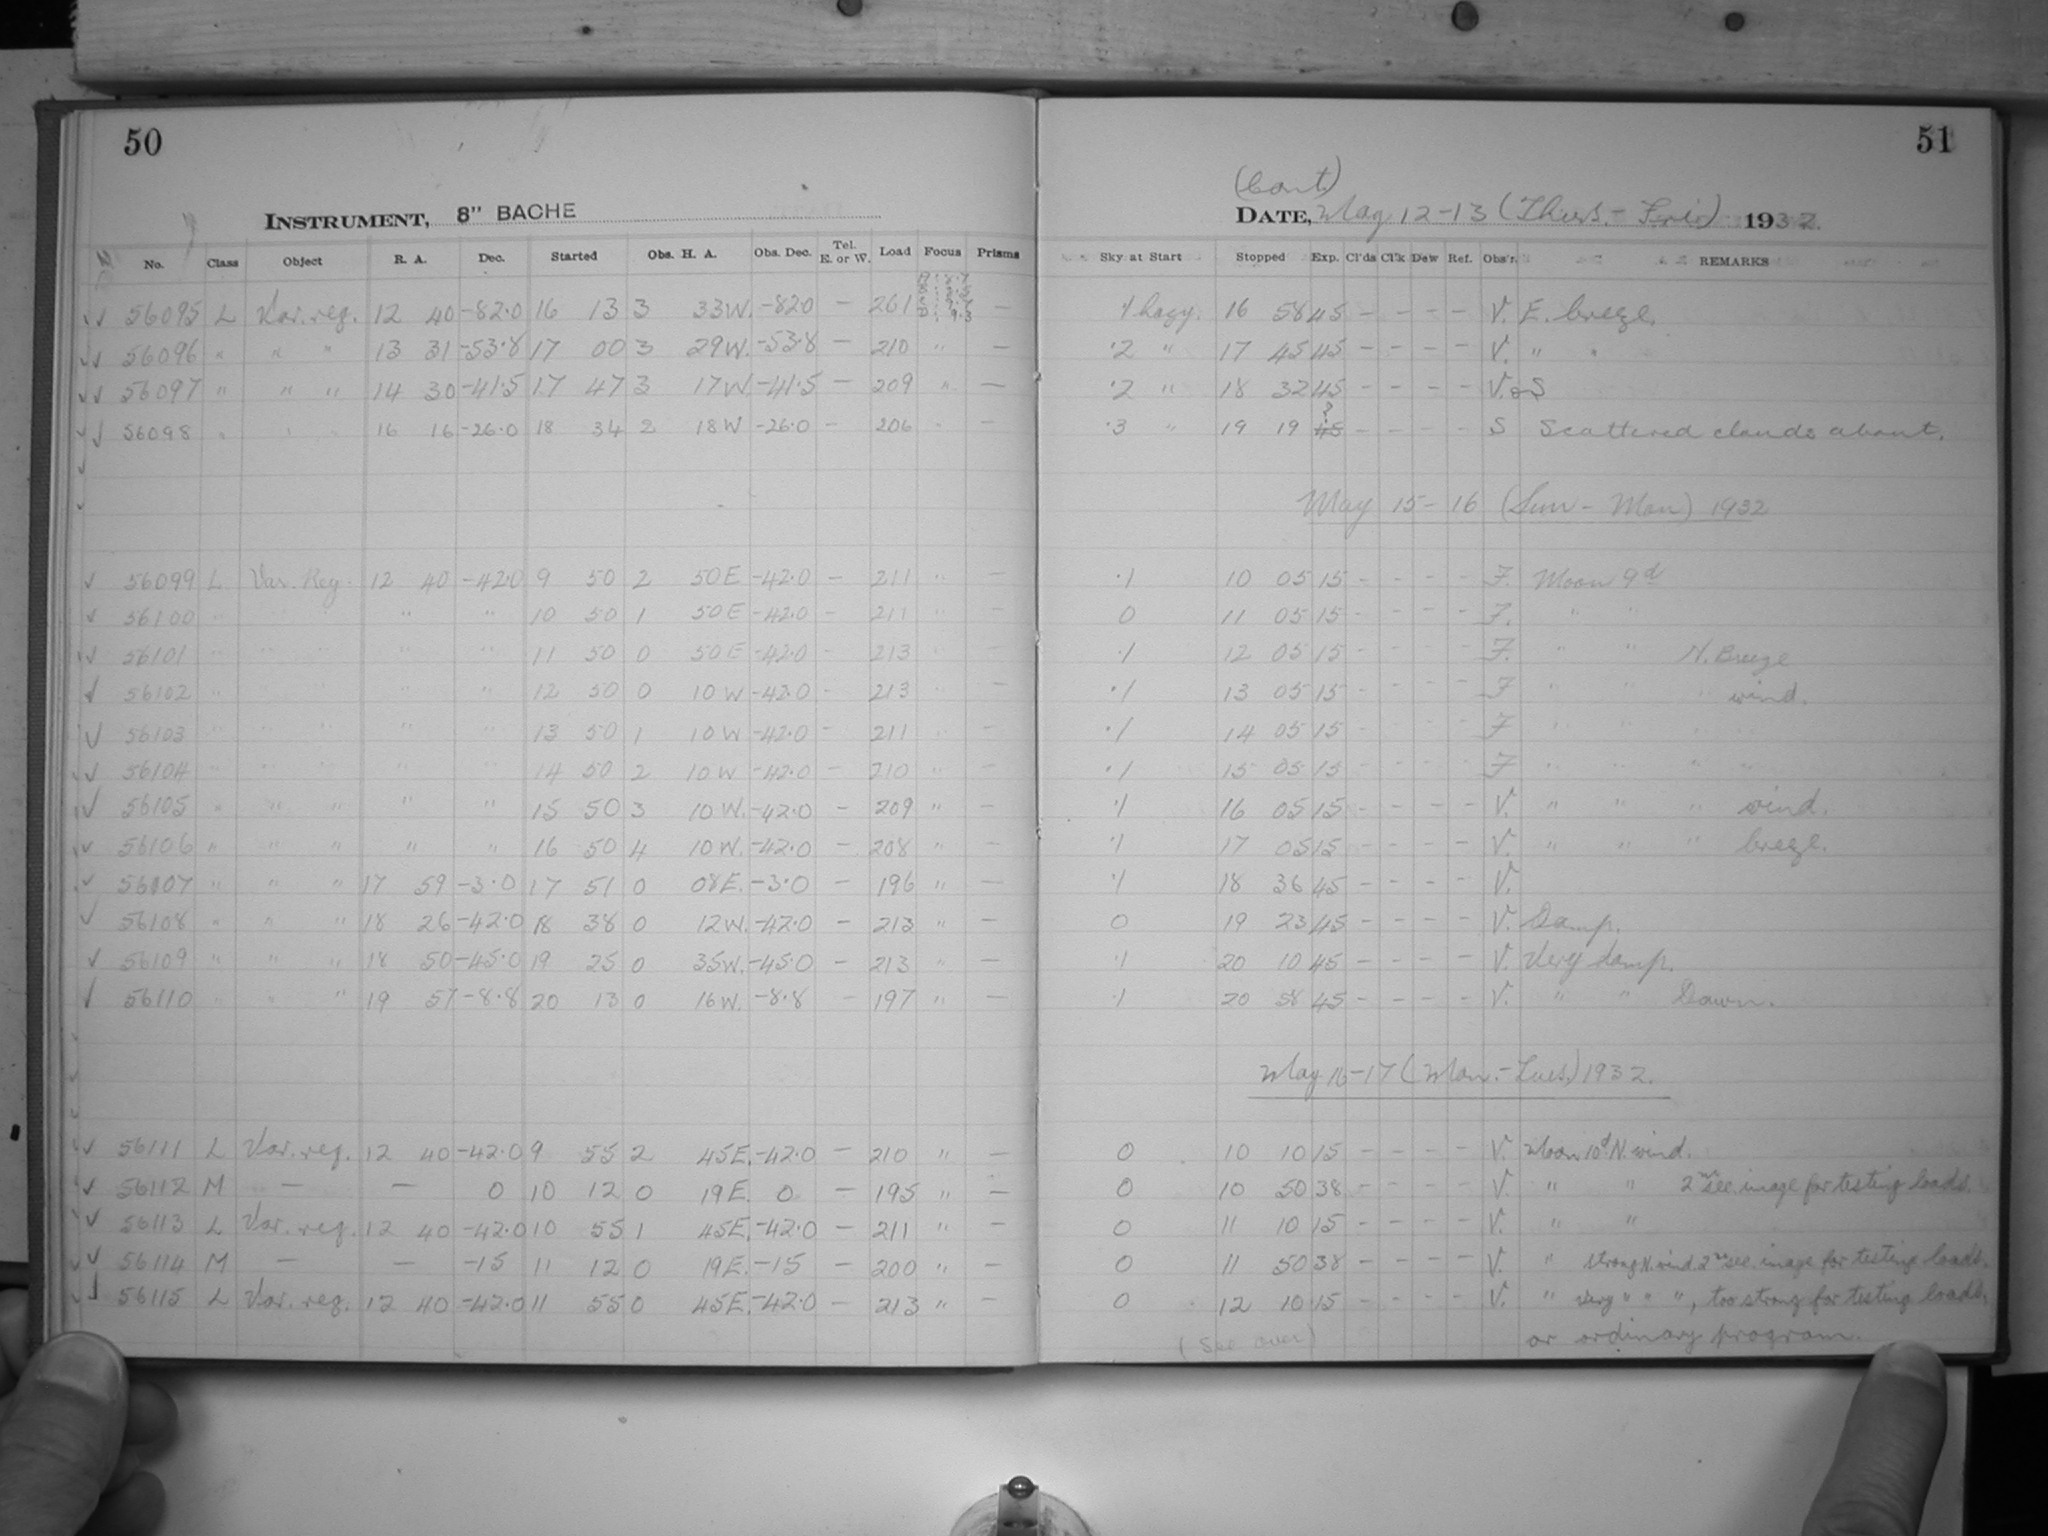 50
INSTRUMENT, 8" BACHE
No. Class Object R. A. Dec. Started Obs. H. A. Obs. Dec. Tel. E. or W. Load Focus Prisms
56095 L Var. reg. 12 40 -82.0 16 13 3 33W. -82.0 - 261 -
56096 " " " 13 31 -53.8 17 00 3 29W. -53.8 - 210 " -
56097 " " " 14 30 -41.5 17 47 3 17W -41.5 - 209 " -
56098 " " " 16 16 -26.0 18 34 2 18W -26.0 - 206 " -
56099 L Var. Reg. 12 40 -42.0 9 50 2 50E -42.0 - 211 " -
56100 " " " " " 10 50 1 50E -42.0 - 211 " -
56101 " " " " " 11 50 0 50E -42.0 - 213 " -
56102 " " " " " 12 50 0 10W -42.0 - 213 " -
56103 " " " " " 13 50 1 10W -42.0 - 211 " -
56104 " " " " " 14 50 2 10W -42.0 - 210 " -
56105 " " " " " 15 50 3 10W. -42.0 - 209 " -
56106 " " " " " 16 50 4 10W. -42.0 - 208 " -
56107 " " " 17 59 -3.0 17 51 0 08E. -3.0 - 196 " -
56108 " " " 18 26 -42.0 18 38 0 12W. -42.0 - 213 " -
56109 " " " 18 50 -45.0 19 25 0 35W. -45.0 - 213 " -
56110 " " " 19 57 -8.8 20 13 0 16W. -8.8 - 197 " -
56111 L Var. reg. 12 40 -42.0 9 55 2 45E. -42.0 - 210 " -
56112 M - - 0 10 12 0 19E. 0 - 195 " -
56113 L Var. reg. 12 40 -42.0 10 55 1 45E. -42.0 - 211 " -
56114 M - - -15 11 12 0 19E. -15 - 200 " -
56115 L Var. reg. 12 40 -42.0 11 55 0 45E. -42.0 - 213 " -
51
(Cont.)
DATE, May 12-13 (Thurs. - Fri.) 1932.
Sky at Start Stopped Exp. Cl'ds Cl'k Dew Ref. Obs'r. REMARKS
.1 hazy. 16 58 45 - - - - V. E. breeze.
.2 " 17 45 45 - - - - V. " "
.2 " 18 32 45 - - - - V. & S
.3 " 19 19 45 ? - - - - S Scattered clouds about.
May 15-16 (Sun - Mon) 1932
.1 10 05 15 - - - - F. Moon 9d
0 11 05 15 - - - - F. " "
.1 12 05 15 - - - - F. " " N. Breeze
.1 13 05 15 - - - - F " " " wind.
.1 14 05 15 - - - - F " " " "
.1 15 05 15 - - - - F " " " "
.1 16 05 15 - - - - V. " " " wind.
.1 17 05 15 - - - - V. " " " breeze.
.1 18 36 45 - - - - V.
0 19 23 45 - - - - V. Damp.
.1 20 10 45 - - - - V. Very damp.
.1 20 58 45 - - - - V. " " Dawn.
May 16-17 (Mon. - Tues.) 1932.
0 10 10 15 - - - - V. Moon 10d N. wind.
0 10 50 38 - - - - V. " " 2nd sec. image for testing loads.
0 11 10 15 - - - - V. " "
0 11 50 38 - - - - V. " strong N. wind. 2nd sec. image for testing loads.
0 12 10 15 - - - - V. " very " " ", too strong for testing loads,
(See over) or ordinary program.